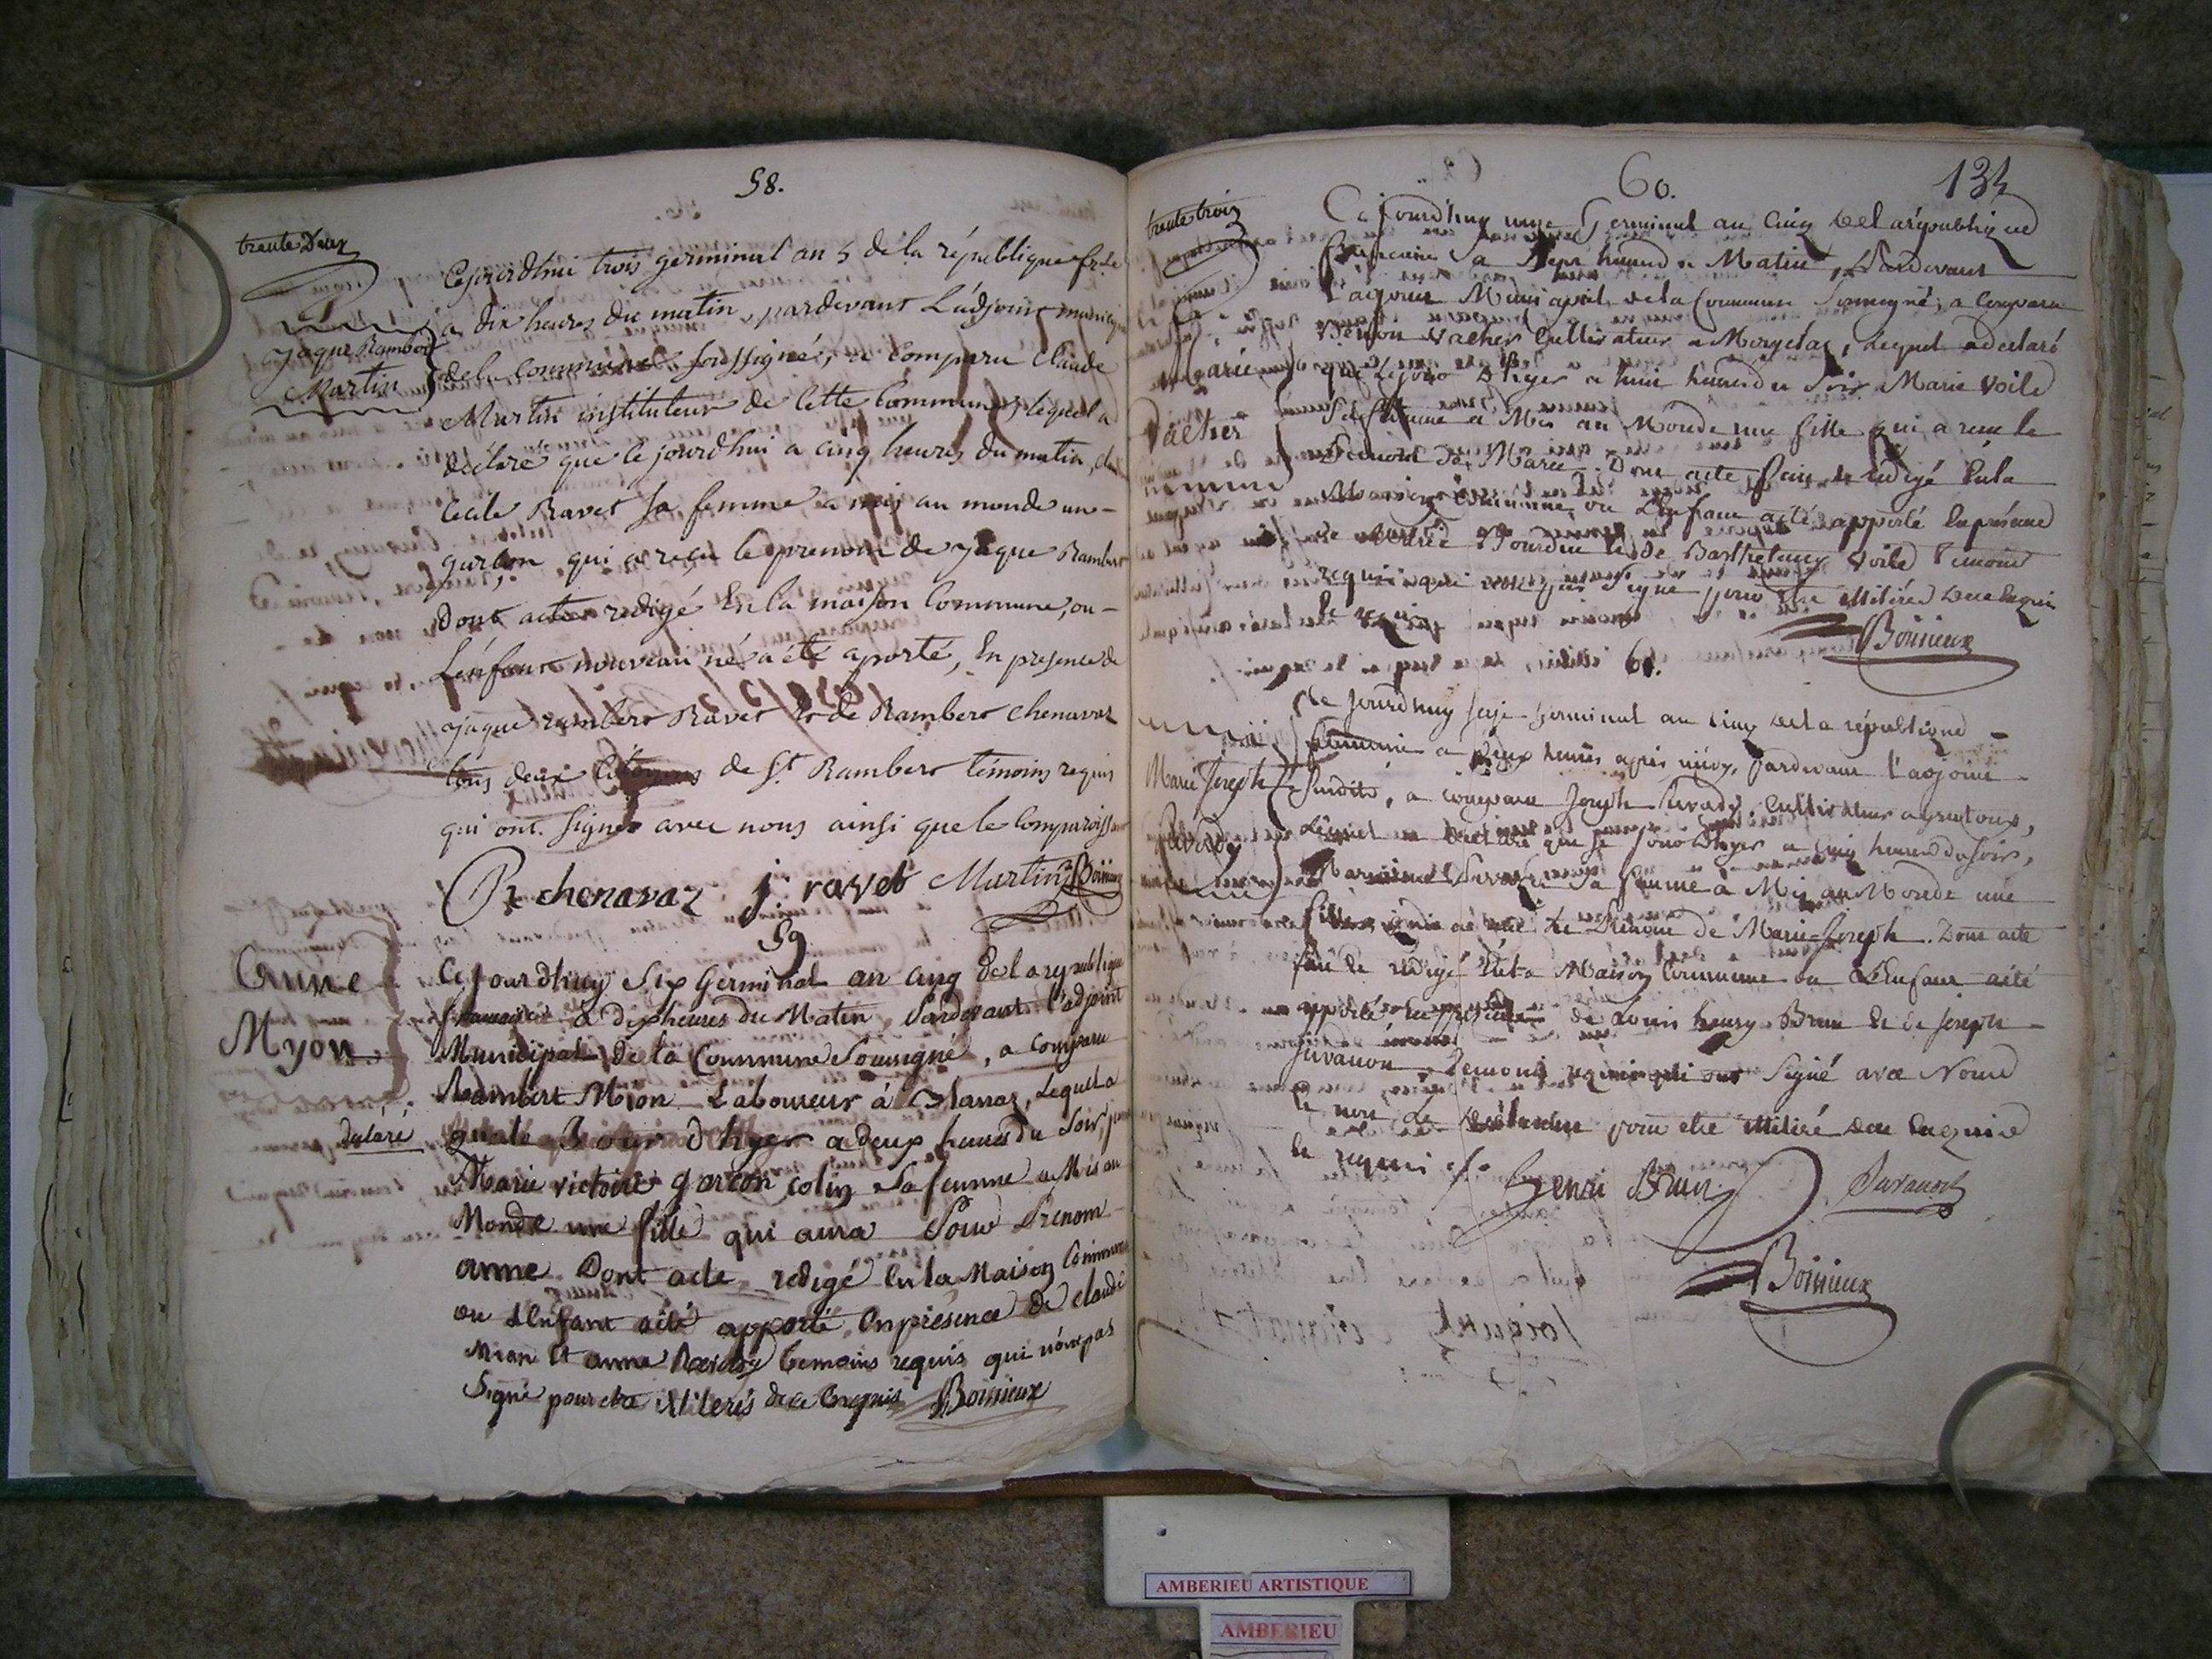 58.
trente Deux
Jaque Rambert
Martin
Cejourdhui trois germinal an 5 de la république fr.se
à dix heures du matin, pardevant L'adjoint municip
de la Commune soussigné, a comparu Claude
Martin instituteur de cette commune, lequel a
déclaré que cejourdhui a cinq heures du matin,
Cécile Ravet sa femme a mis au monde un-
garçon qui a reçu le prenom de jaque Rambert
dont acte redigé En la maison Commune, ou-
L'enfant nouveau né a été aporté, En presence de
jaque rambert Ravet & de Rambert chenavaz
tous deux Citoyens de St Rambert témoins requis
qui ont signé avec nous ainsi que le Comparoissant
R chenavaz j ravet Martin Boissieux
59
Anne
Myon
Cejourdhuy Six Germinal an cinq de la republique
francaise à dix heures du Matin, Pardevant l'adjoint
Municipal de la Commune Soussigné, a comparu
Rambert Mion Laboureur à Blanaz, Lequel a
déclaré que le Jour d'hyer a deux heures du Soir,
Marie victoire garcon colin Sa femme a Mis au
Monde une fille qui aura Pour Prenom
anne Dont acte redigé En la Maison Commune
ou L'Enfant a été apporté, En présence de claude
Mion et anne temoins requis qui n'ont pas
Signé pour etre illiterés de ce Enquis Boissieux
60. 134
trente trois
Marie
Vacher
Cejourdhuy onze Germinal an Cinq de la république
francaise a Sept heures du Matin, Pardevant
L'adjoint Municipal de la Commune Soussigné, a Comparu
Vacher Cultivateur a Morgelas, Lequel a declaré
que Le jour d'hyer a huit heures du Soir Marie Voile
Sa femme a Mis au Monde une fille qui a recu le
Prenom de Marie. Dont acte fait & redigé En la
Maison Commune, ou L'enfant a été apporté En présence
Bourdin & de Barthelemy Voile Temoins
requis qui n'ont pas Signé pour etre illitérés De ce Enquis
le requis Boissieux
61.
Marie Joseph
Ce Jourdhuy seize Germinal an Cinq de la république
francaise a Deux heures après midy, Pardevant l'adjoint
Susdit, a comparu Joseph Cultivateur a
Lequel a declaré que le jour d'hyer a Cinq heures du Soir,
Sa femme a Mis au Monde une
fille qui a recu le Prénom de Marie-Joseph. Dont acte
fait & redigé En la Maison Commune ou L'Enfant a été
apporté En présence de Louis henry Brun & de Joseph
Juvanon Temoins requis qui ont Signé avec Nous
& non Le déclarant pour etre illitéré de ce Enquis
le requis /.
henri Brun Juvanon
Boissieux
AMBERIEU ARTISTIQUE
AMBERIEU